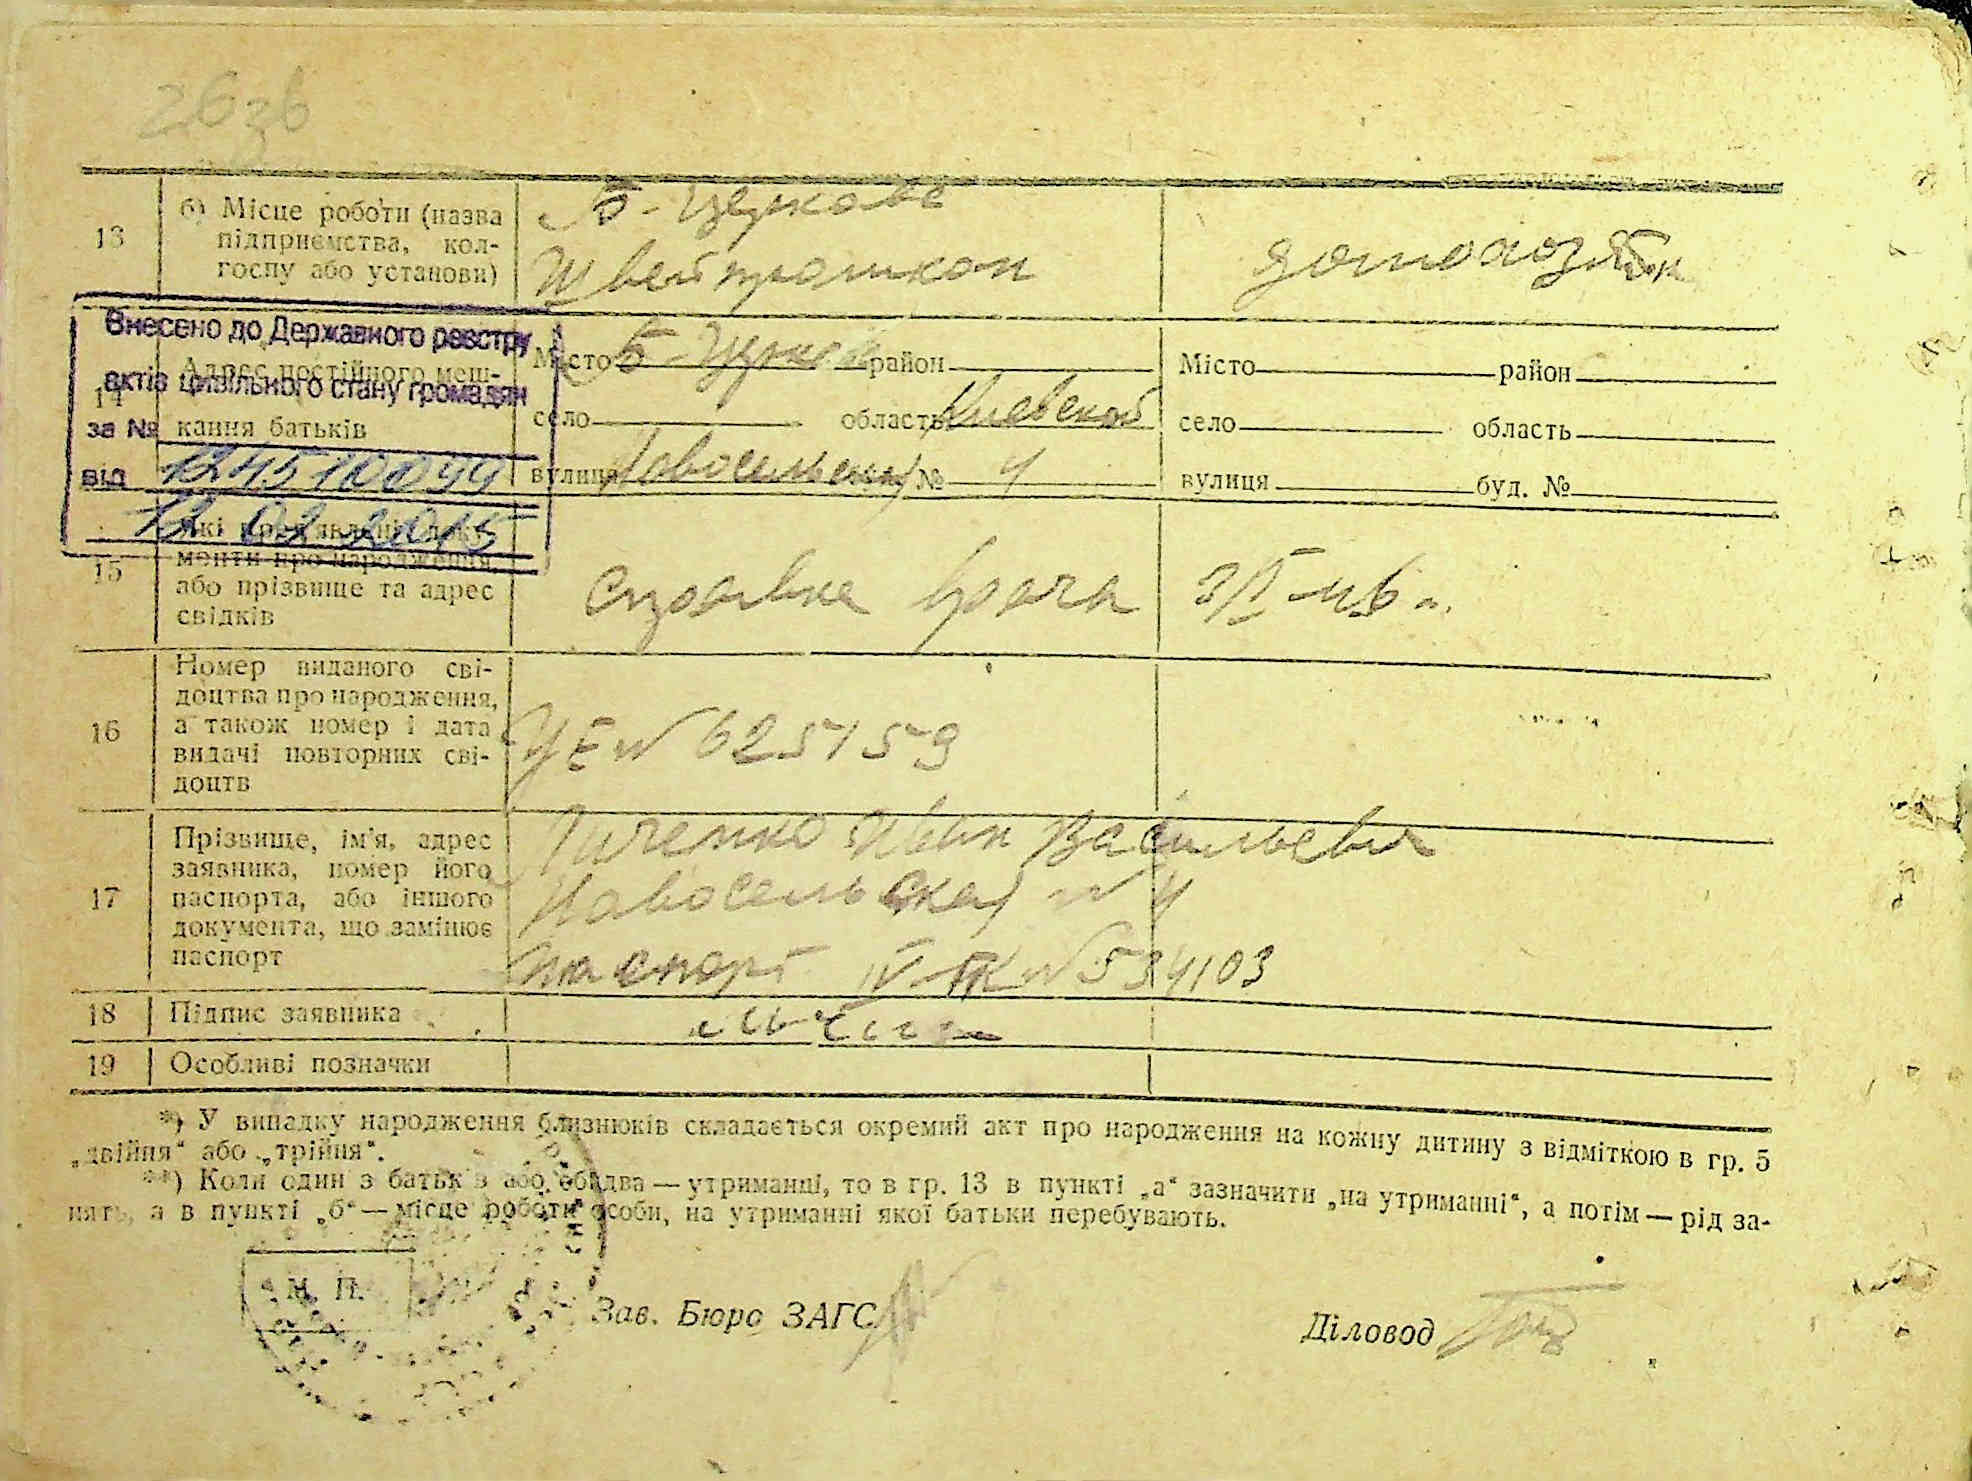 13 б) Місце роботи (назва
підприємства, кол-
госпу або установи)
Б-Церкове
Швейпромкоп
домохозяйк
Внесено до Державного реєстру
актів цивільного стану громадян
за №
від 12451 00 99
12 02 2015
14 Адрес постійного меш-
кання батьків
Місто Б-Церков район
село область Киевской
вулиця Новосельская № 4
Місто район
село область
вулиця буд. №
15 Які пред'явлені доку-
менти про народження,
або прізвище та адрес
свідків
справка врача
16 Номер виданого сві-
доцтва про народження,
а також номер і дата
видачі повторних сві-
доцтв
УЕ № 625159
17 Прізвище, ім'я, адрес
заявника, номер його
паспорта, або іншого
документа, що замінює
паспорт
Иван Васильевич
Новосельская № 4
паспорт № 534103
18 Підпис заявника
19 Особливі позначки
*) У випадку народження близнюків складається окремий акт про народження на кожну дитину з відміткою в гр. 5
„двійня“ або „трійня“.
**) Коли один з батьків або обидва — утриманці, то в гр. 13 в пункті „а“ зазначити „на утриманні“, а потім — рід за-
нять, а в пункті „б“ — місце роботи особи, на утриманні якої батьки перебувають.
М. П.
Зав. Бюро ЗАГС
Діловод